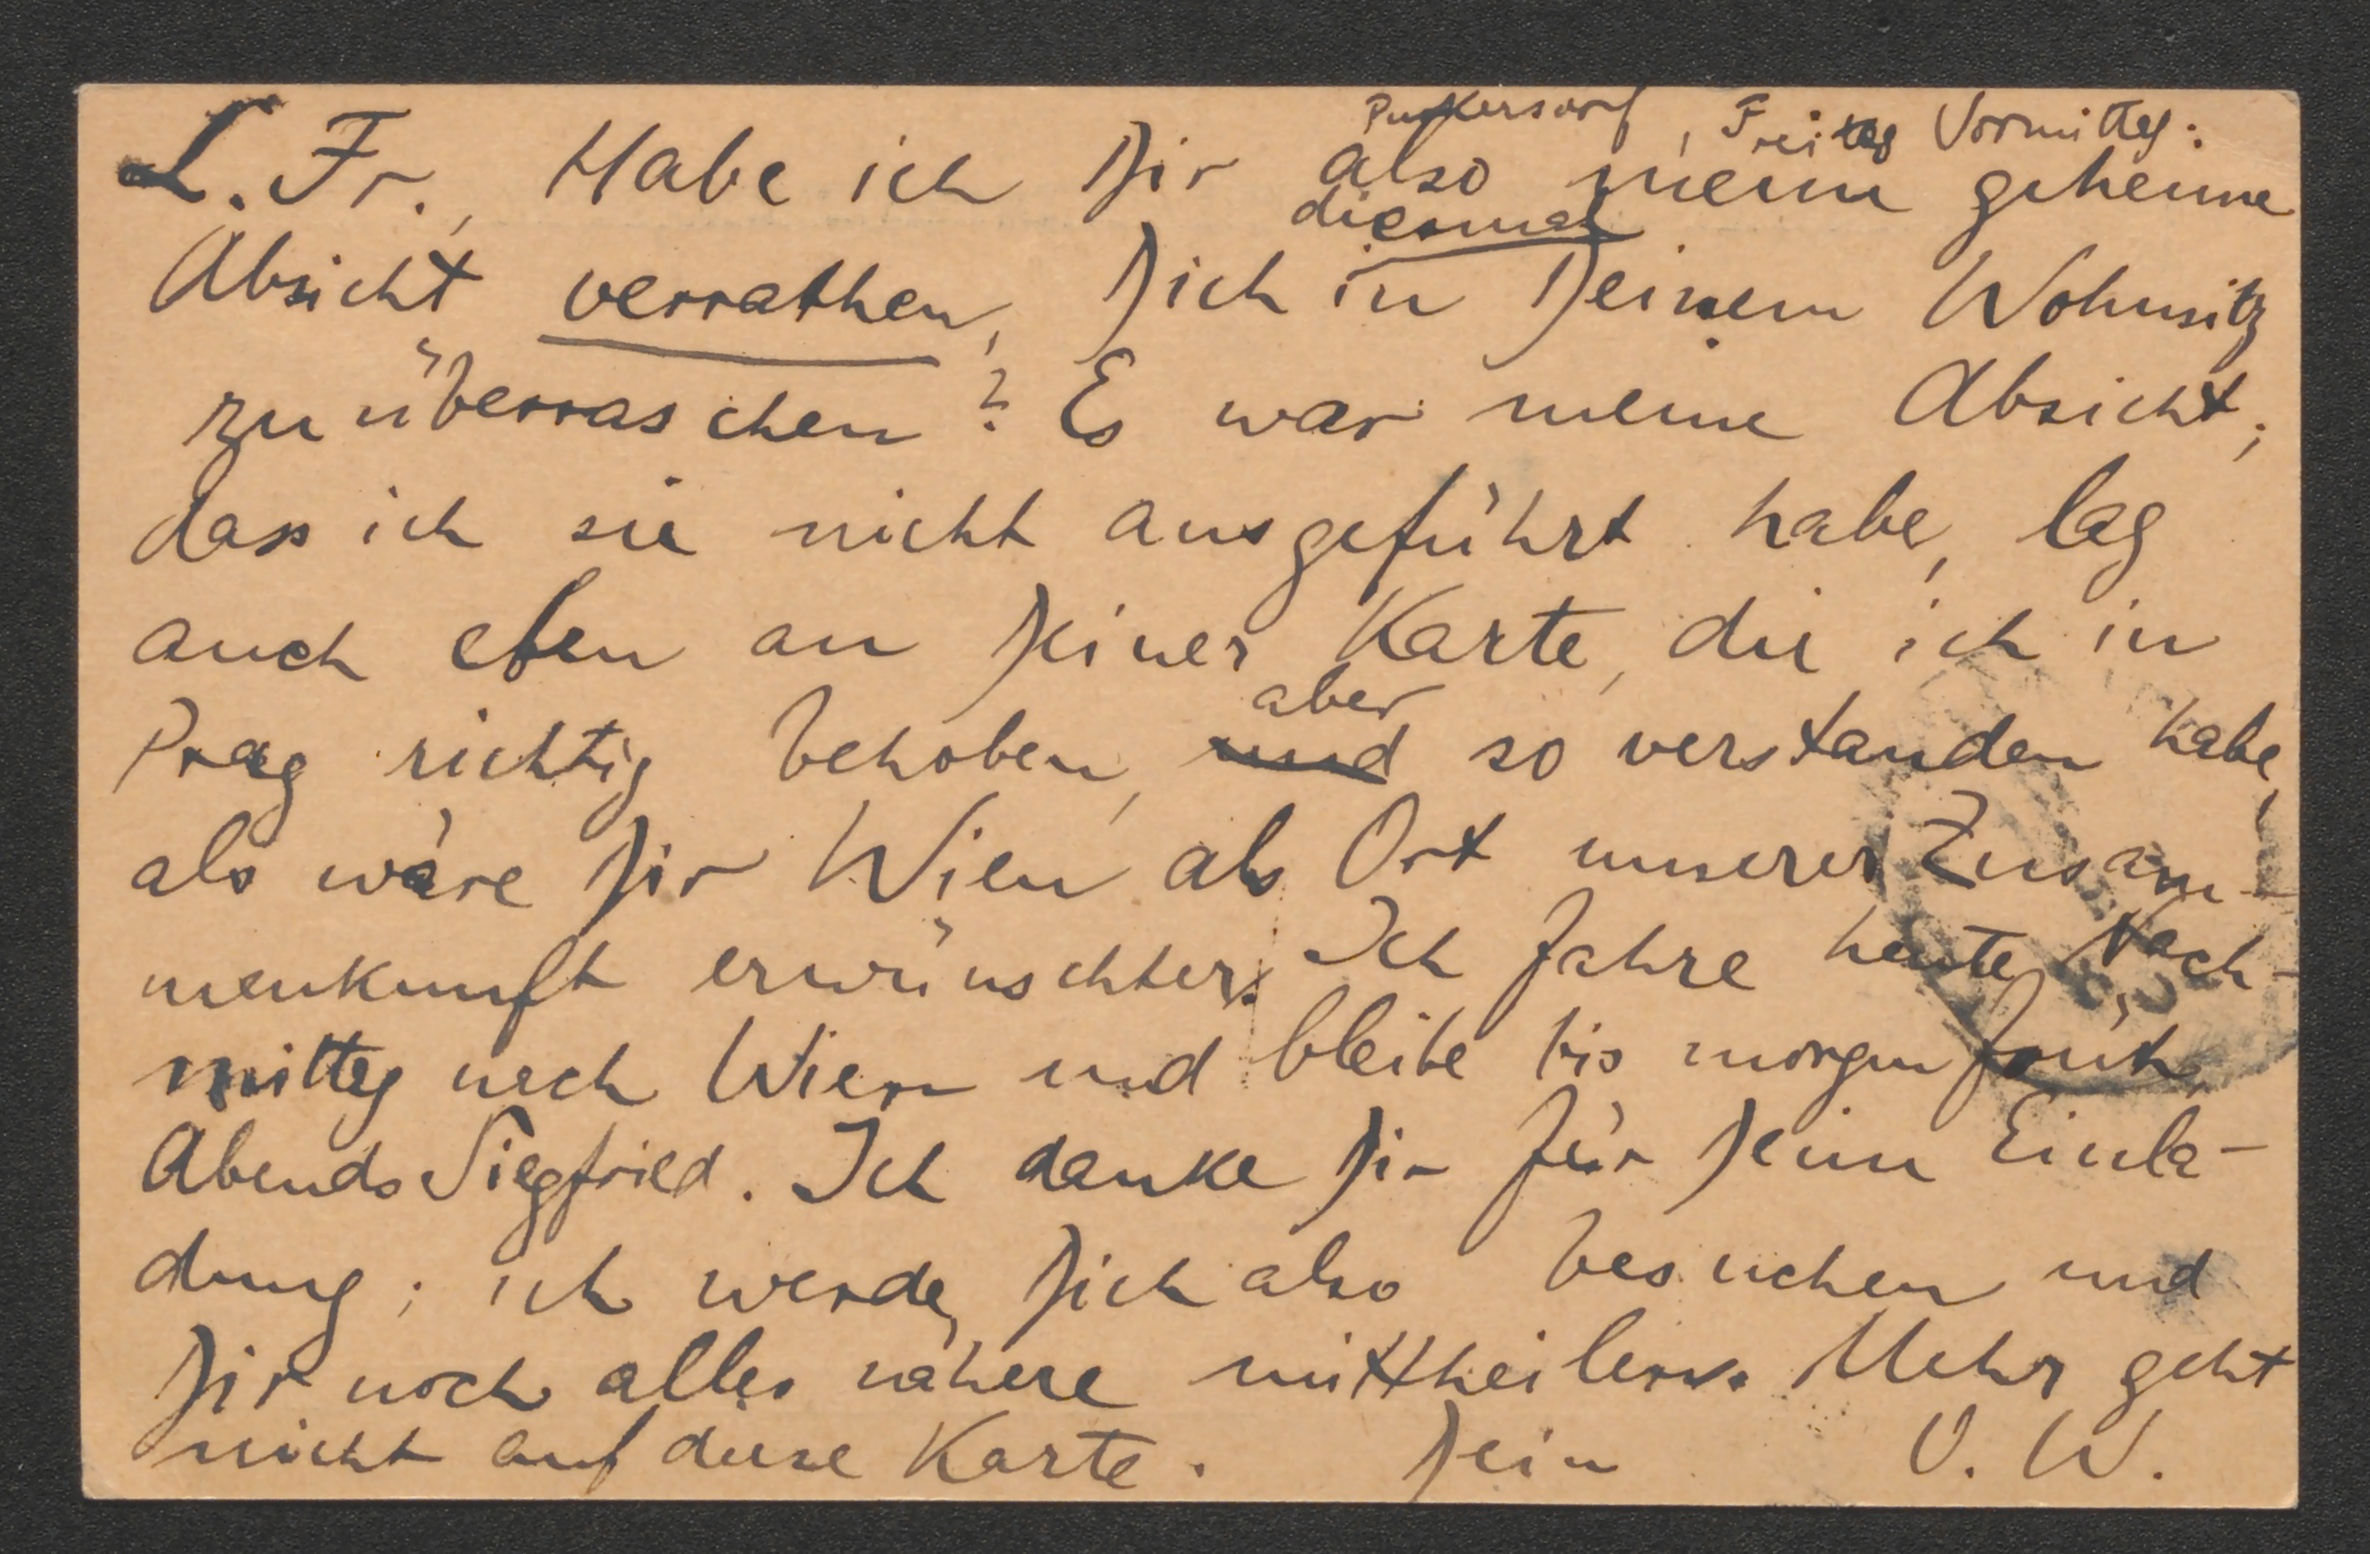 Purkersdorf, Freitag Vormittag:
L. Fr., Habe ich Dir also meine geheime
diesmal
Absicht verrathen, Dich in Deinem Wohnsitz
zu überraschen? Es war meine Absicht;
dass ich sie nicht ausgeführt habe, lag
auch eben an Deiner Karte, die ich in
aber
Prag richtig behoben, und so verstanden habe,
als wäre Dir Wien als Ort unserer Zusam-
menkunft erwünschter. Ich fahre heute Nach-
mittag nach Wien und bleibe bis morgen früh,
Abends Siegfried. Ich danke Dir für Deine Einla-
dung; ich werde Dich also besuchen und
Dir noch alles nähere mittheilen. Mehr geht
nicht auf diese Karte. Dein O. W.